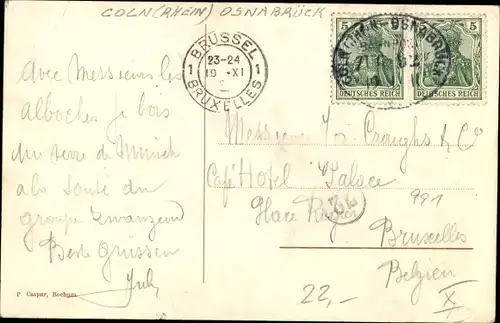 COLN (RHEIN) OSNABRÜCK
BRÜSSEL
1 23-24 1
19 XI
BRUXELLES
5 5
DEUTSCHES REICH DEUTSCHES REICH
CÖLN (RHEIN)-OSNABRÜCK
Avec Messieurs les
alboches je bois
du verre de Munich
à la santé du
groupe
Beste Grüssen
Messieurs & Co
Café Hotel Palace
Place
991
Bruxelles
Belgien
22,-
X
P. Caspar, Bochum.